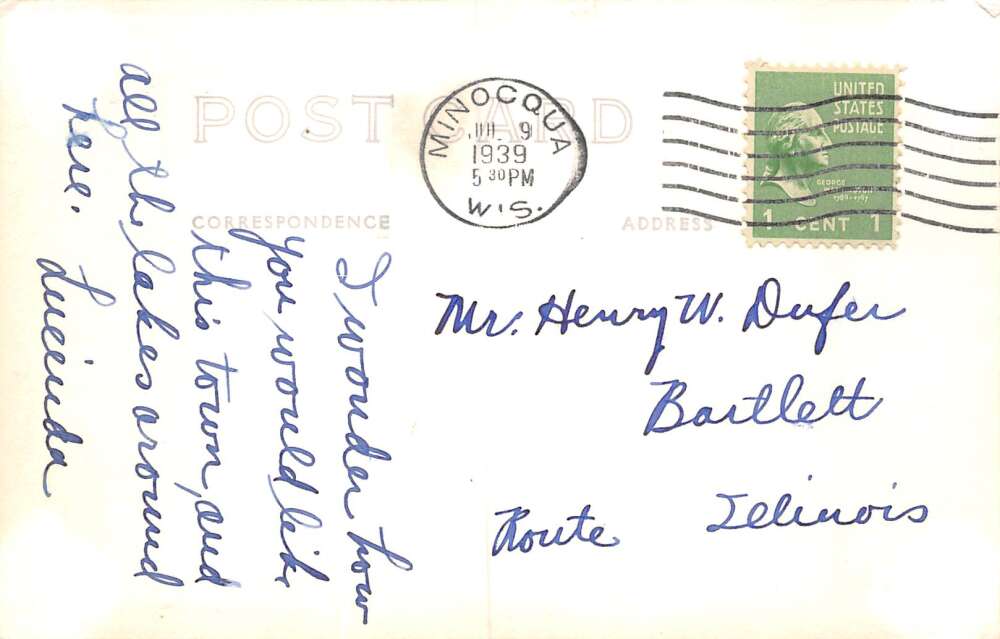 POST CARD
MINOCQUA
JUL 9
1939
5 30 PM
WIS.
UNITED
STATES
POSTAGE
GEORGE
1 CENT 1
CORRESPONDENCE
ADDRESS
I wonder how
you would like
this town, and
all the lakes around
here. Lucinda
Mr. Henry W. Dufer
Bartlett
Route Illinois